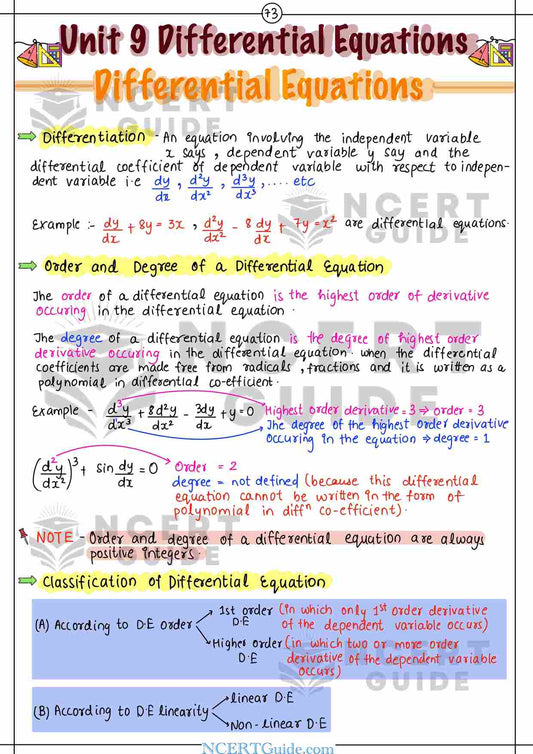 73
Unit 9 Differential Equations
Differential Equations
NCERT
GUIDE
⇒ Differentiation - An equation involving the independent variable
x says, dependent variable y say and the
differential coefficient of dependent variable with respect to indepen-
dent variable i.e dy/dx, d²y/dx², d³y/dx³, .... etc
NCERT
GUIDE
Example :- dy/dx + 8y = 3x, d²y/dx² - 8 dy/dx + 7y = x² are differential equations.
⇒ Order and Degree of a Differential Equation
The order of a differential equation is the highest order of derivative
occuring in the differential equation.
The degree of a differential equation is the degree of highest order
derivative occuring in the differential equation. when the differential
coefficients are made free from radicals, fractions and it is written as a
polynomial in differential co-efficient.
NCERT
GUIDE
Example - d³y/dx³ + 8d²y/dx² - 3dy/dx + y = 0 Highest order derivative = 3 ⇒ order = 3
The degree of the highest order derivative
occuring in the equation ⇒ degree = 1
(d²y/dx²)³ + sin dy/dx = 0 Order = 2
degree = not defined (because this differential
equation cannot be written in the form of
polynomial in diffⁿ co-efficient).
NCERT
GUIDE
NOTE - Order and degree of a differential equation are always
positive integers.
⇒ Classification of Differential Equation
(A) According to D.E order → 1st order D.E (in which only 1st order derivative
of the dependent variable occurs)
→ Higher order D.E (in which two or more order
derivative of the dependent variable
occurs)
NCERT
GUIDE
(B) According to D.E linearity → linear D.E
→ Non-linear D.E
NCERTGuide.com